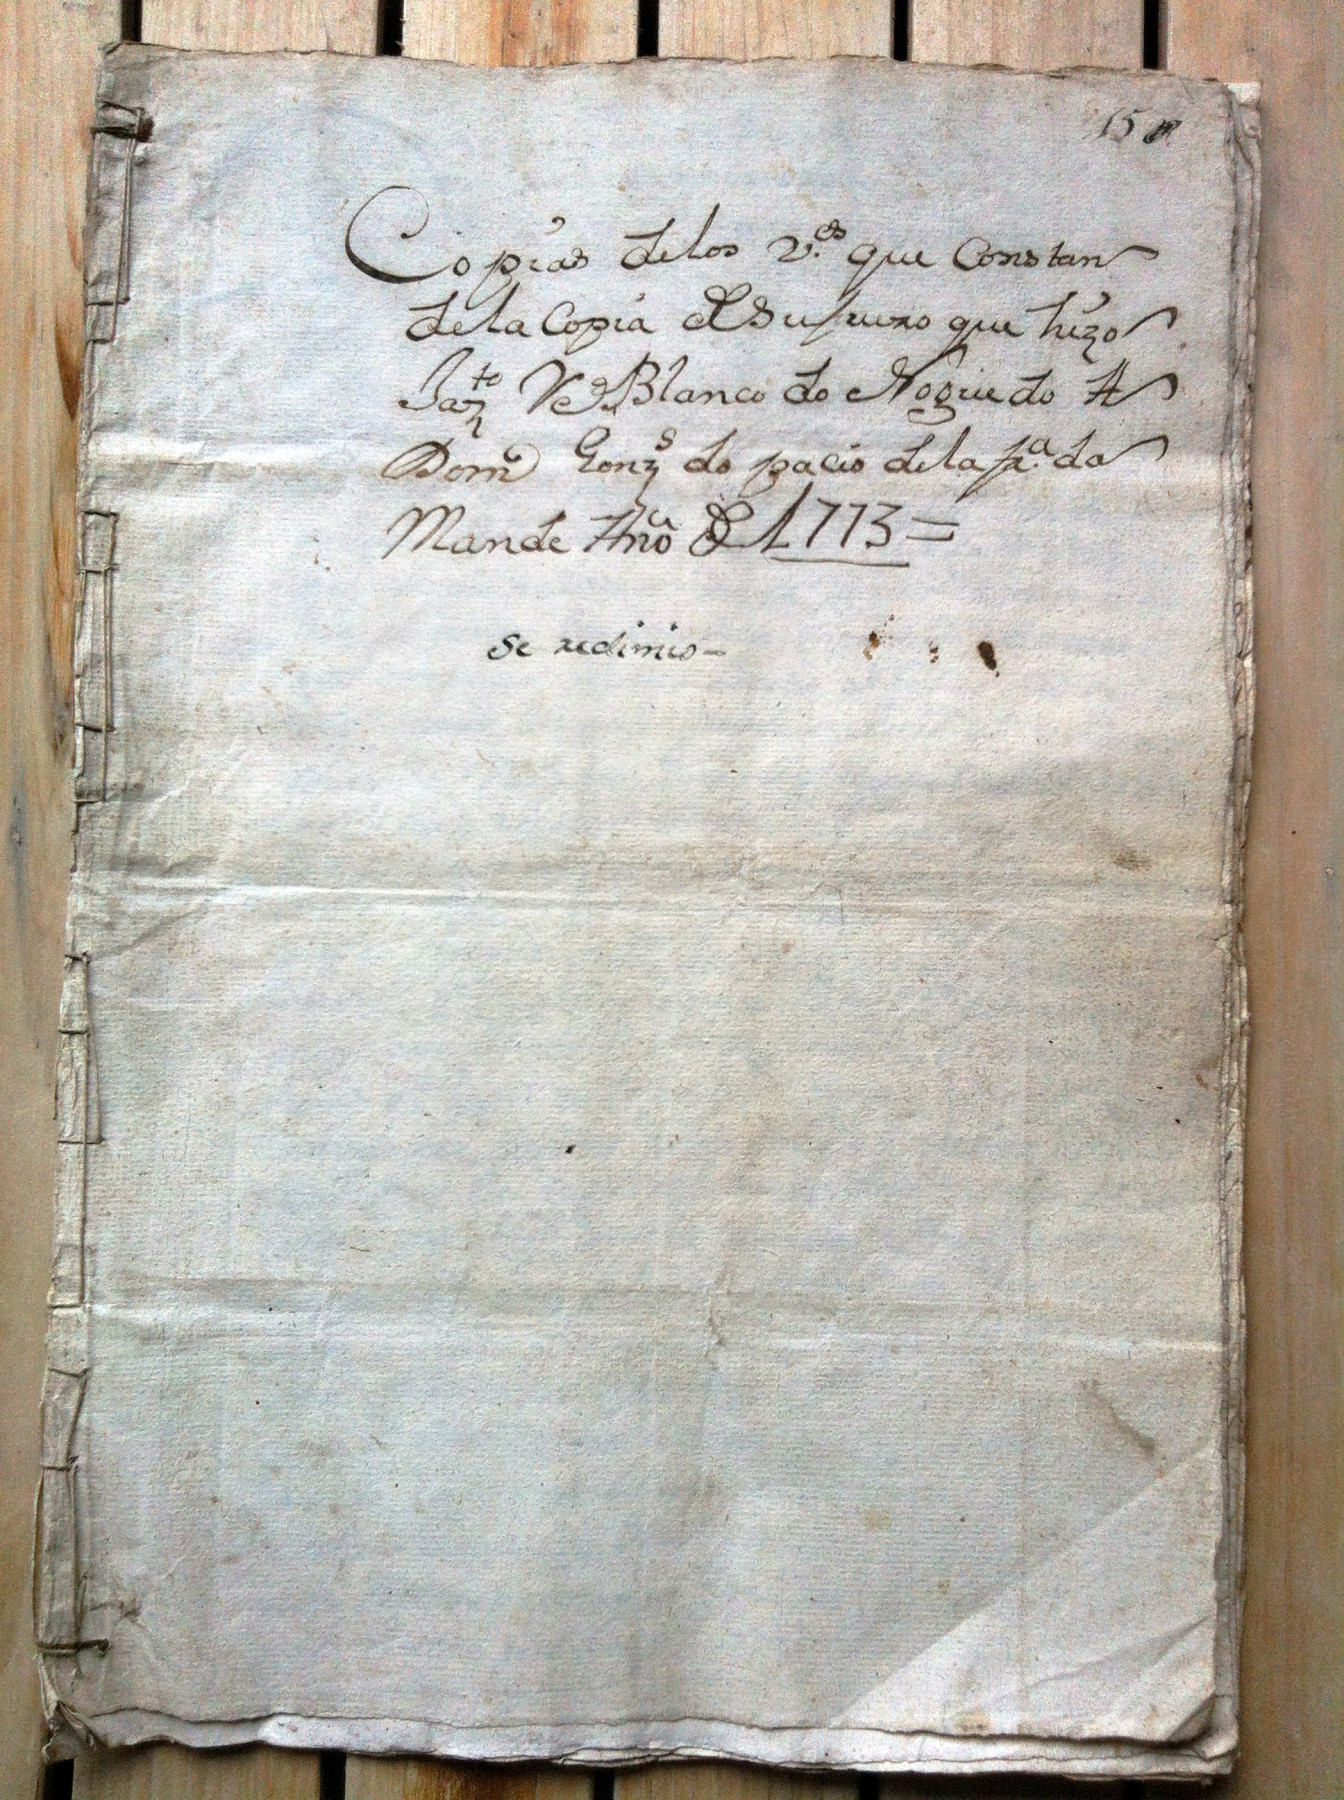 15
Copias delos v.es que Constan
dela Copia de Su fuero que hizo
Jaz.to Blanco do Nogueido A
Dom.o Gonz.s do pacio dela fra.a da
Mande Año de 1773 =
Se redimio -